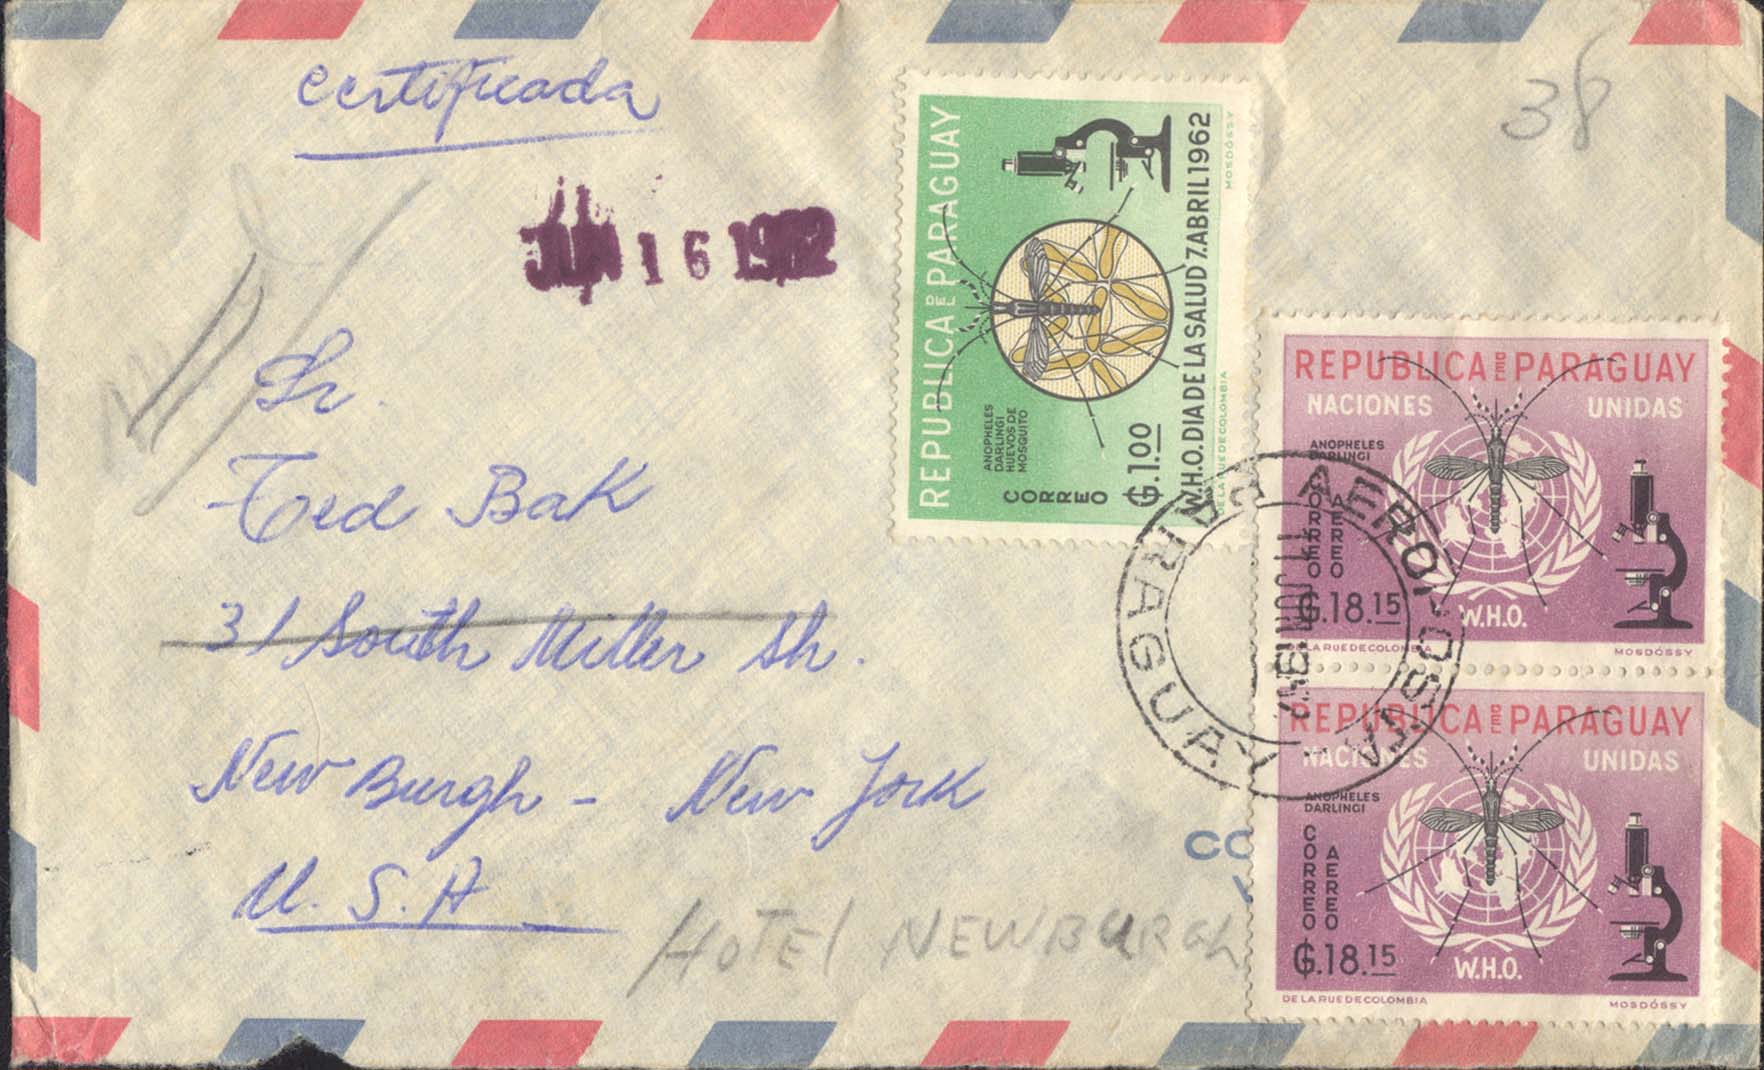 certificada
38
JUN 16 1962
Sr.
Ted Bak
31 South Miller Sh.
New Burgh - New York
U. S. A
HOTEL NEWBURGH
REPUBLICA DE PARAGUAY
ANOPHELES
DARLINGI
HUEVOS DE
MOSQUITO
CORREO
₲.1.00
W.H.O. DIA DE LA SALUD 7. ABRIL 1962
DE LA RUE DE COLOMBIA
MOSDÓSSY
REPUBLICA DEL PARAGUAY
NACIONES UNIDAS
ANOPHELES
DARLINGI
CORREO AEREO
₲.18.15
W.H.O.
DE LA RUE DE COLOMBIA
MOSDÓSSY
REPUBLICA DEL PARAGUAY
NACIONES UNIDAS
ANOPHELES
DARLINGI
CORREO AEREO
₲.18.15
W.H.O.
DE LA RUE DE COLOMBIA
MOSDÓSSY
PARAGUAY
11 JUN
CO